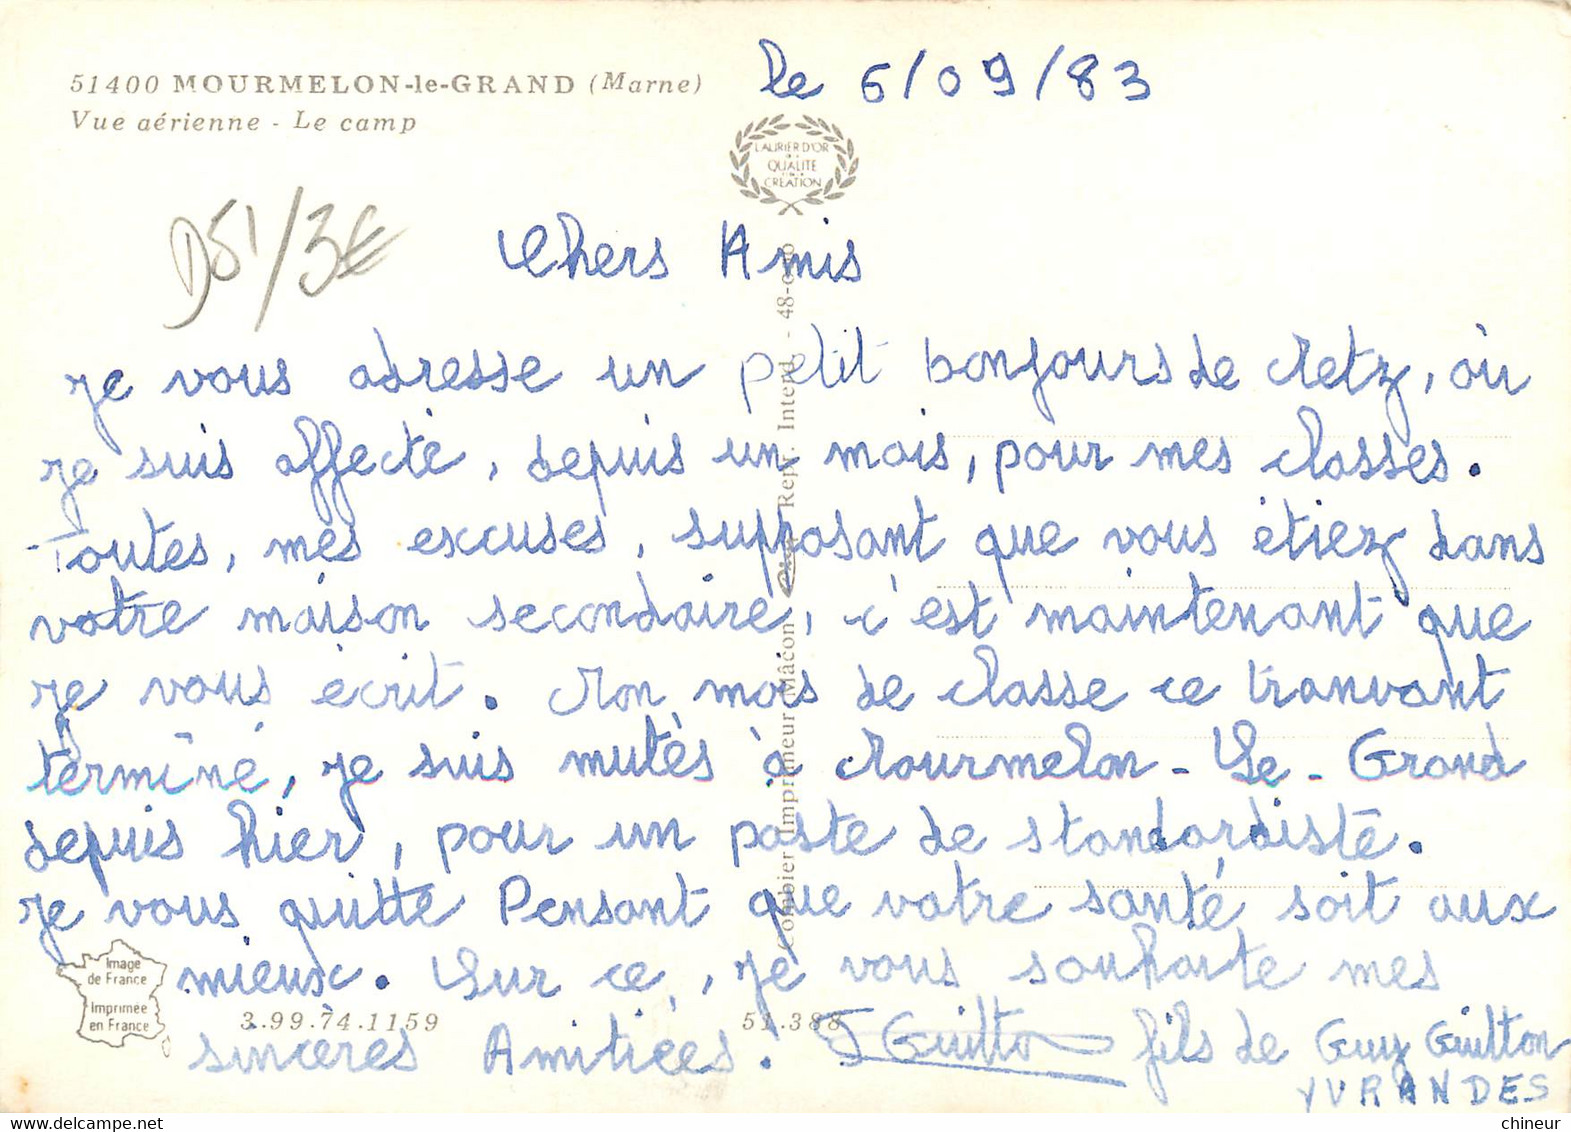 51400 MOURMELON-le-GRAND (Marne)
Vue aérienne - Le camp
le 6/09/83
LAURIER D'OR
QUALITE
CREATION
D51/3€
Chers Amis
je vous adresse un petit bonjours de Metz, où
je suis affecté, depuis un mois, pour mes classes.
Toutes, mes excuses, supposant que vous étiez dans
votre maison secondaire, c'est maintenant que
je vous écrit. Mon mois de classe ce tranvant
terminé, je suis mutés à Mourmelon-Le-Grand
depuis hier, pour un poste de standardiste.
je vous quitte Pensant que votre santé soit aux
mieux. Sur ce, je vous souhaite mes
sincères Amitiées. J Guitton fils de Guy Guitton
YVRANDES
Image
de France
Imprimée
en France
3.99.74.1159
51.388
Combier Imprimeur Mâcon Repr. Interd. - 48-
chineur